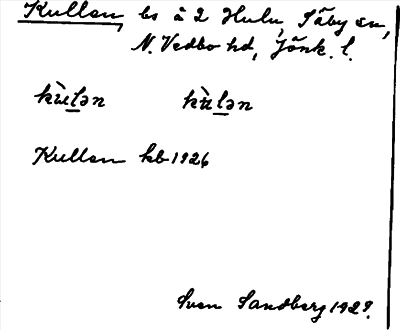 Kullen, bs å 2 Hulu, Säby sn,
N. Vedbo hd, Jönk. l.
kùlən kùlən
Kullen kb 1926
Sven Sandberg 1928.